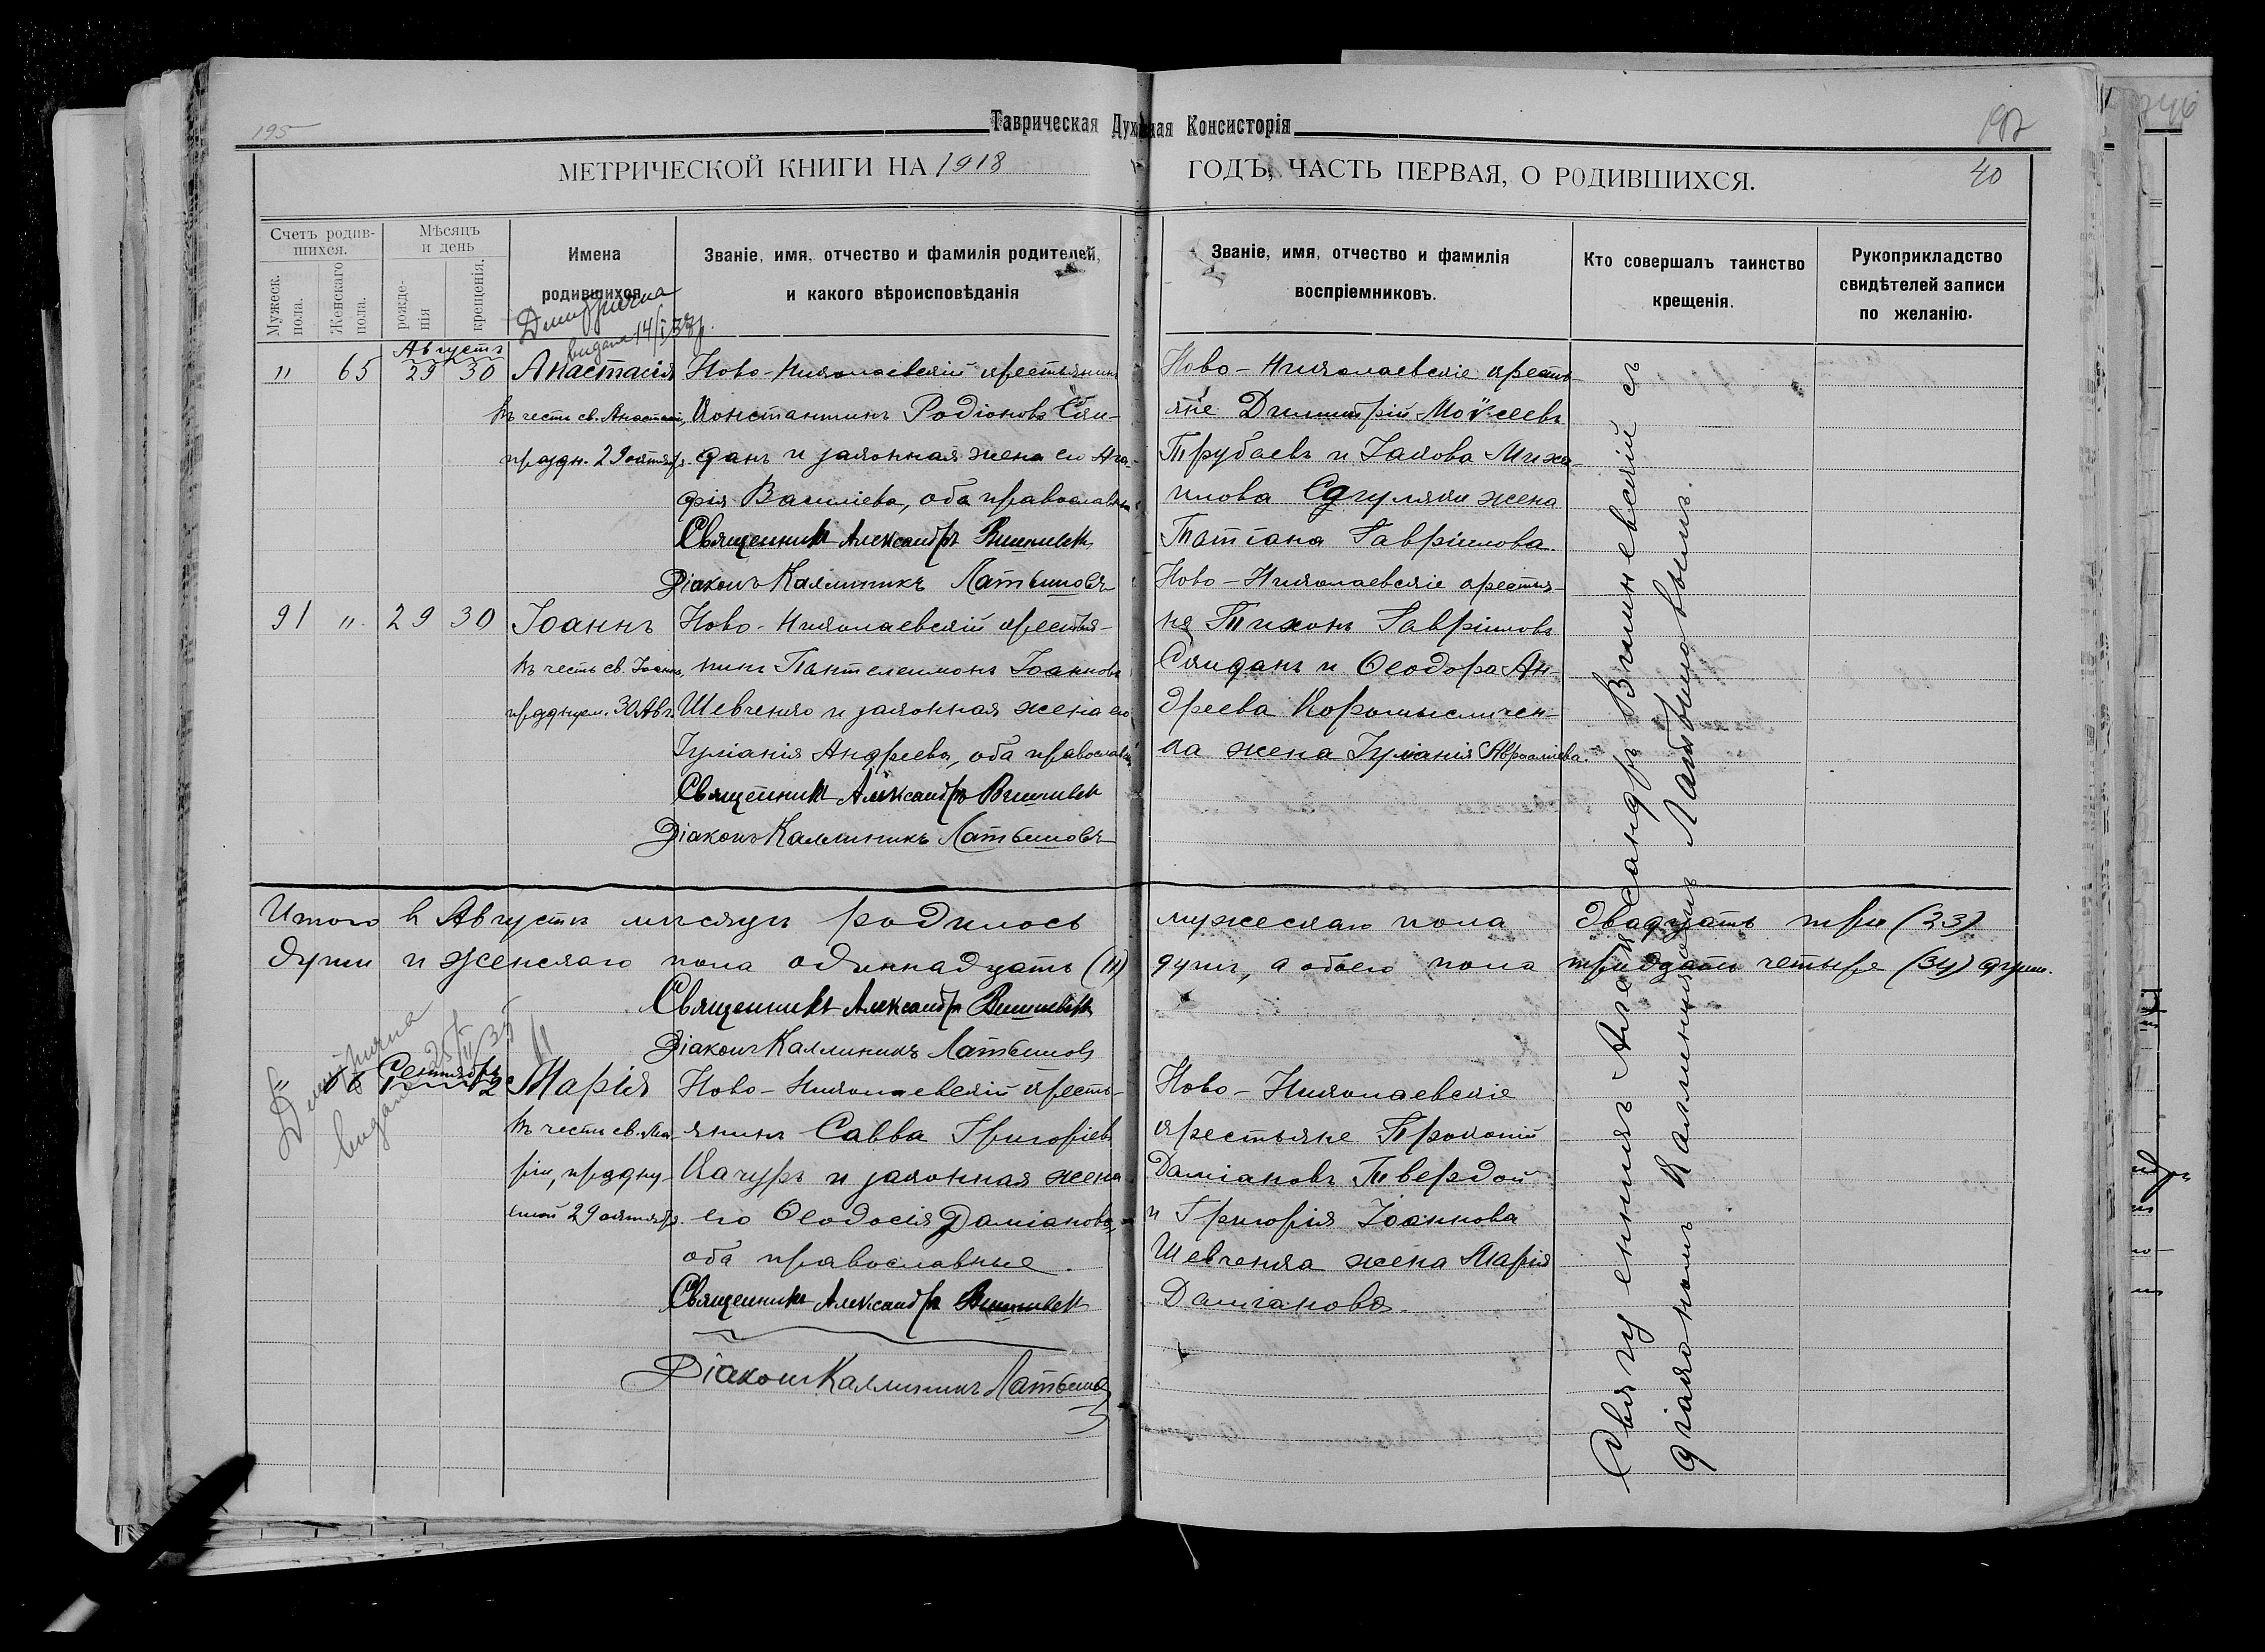 195
Таврическая Духовная Консисторія
МЕТРИЧЕСКОЙ КНИГИ НА 1918
ГОДЪ, ЧАСТЬ ПЕРВАЯ, О РОДИВШИХСЯ.
40
Счетъ родив-
шихся.
Мужеск.
пола.
Женскаго
пола.
Мѣсяцъ
и день
рожде-
нія
крещенія.
Имена
родившихся.
Званіе, имя, отчество и фамилія родителей,
и какого вѣроисповѣданія
Званіе, имя, отчество и фамилія
воспріемниковъ.
Кто совершалъ таинство
крещенія.
Рукоприкладство
свидѣтелей записи
по желанію.
видана 14/I
Августъ
" 65 29 30 Анастасія
въ честь св. Анастасіи,
праздн. 29 октябр.
Ново-Николаевскій крестьянинъ
Константинъ Родіоновъ Ски-
данъ и законная жена его Ага-
фія Василіева, оба православные
Священникъ Александръ
Діаконъ Каллиникъ Латышовъ
Ново-Николаевскіе кресть-
яне Димитрій Моѵсеевъ
Трубаевъ и Іакова Миха-
илова жена
Татіана Гавріилова
91 " 29 30 Іоаннъ
въ честь св. Іоанна,
празднуем. 30 Авг.
Ново-Николаевскій крестья-
нинъ Пантелеимонъ Іоанновъ
Шевченко и законная жена его
Іуліанія Андреева, оба православные
Священникъ Александръ
Діаконъ Каллиникъ Латышовъ
Ново-Николаевскіе крестья-
не Тихонъ Гавріиловъ
Скиданъ и Ѳеодора Ан-
дреева Коромысличен-
ка жена Іуліанія
Итого в Августѣ мѣсяцѣ родилось мужескаго пола двадцать три (23)
души и женскаго пола одиннадцать (11) душъ, а обоего пола тридцать четыре (34) души.
Священникъ Александръ
Діаконъ Каллиникъ Латышовъ
видана 25/II 35
Сентябрь
" 66 1 2 Марія
въ честь св. Ма-
ріи, праздну-
емой 29 октябр.
Ново-Николаевскій кресть-
янинъ Савва Григоріевъ
Качуръ и законная жена
его Ѳеодосія Даміанова,
оба православные.
Священникъ Александръ
Діаконъ Каллиникъ Латышовъ
Ново-Николаевскіе
крестьяне Прокопій
Даміановъ Твердой
и Григорія Іоаннова
Шевченка жена Марія
Даміанова.
Священникъ Александръ Вишневскій съ
діакономъ Каллиникомъ Латышовымъ.